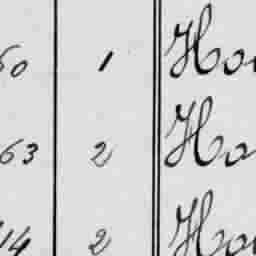 60 1 Ho
63 2 Ho
14 2 Ho